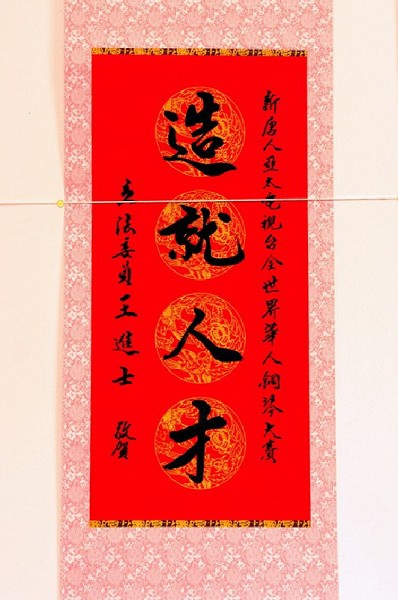 新唐人亞太電視台全世界華人鋼琴大賽
造就人才
立法委員王進士 敬賀